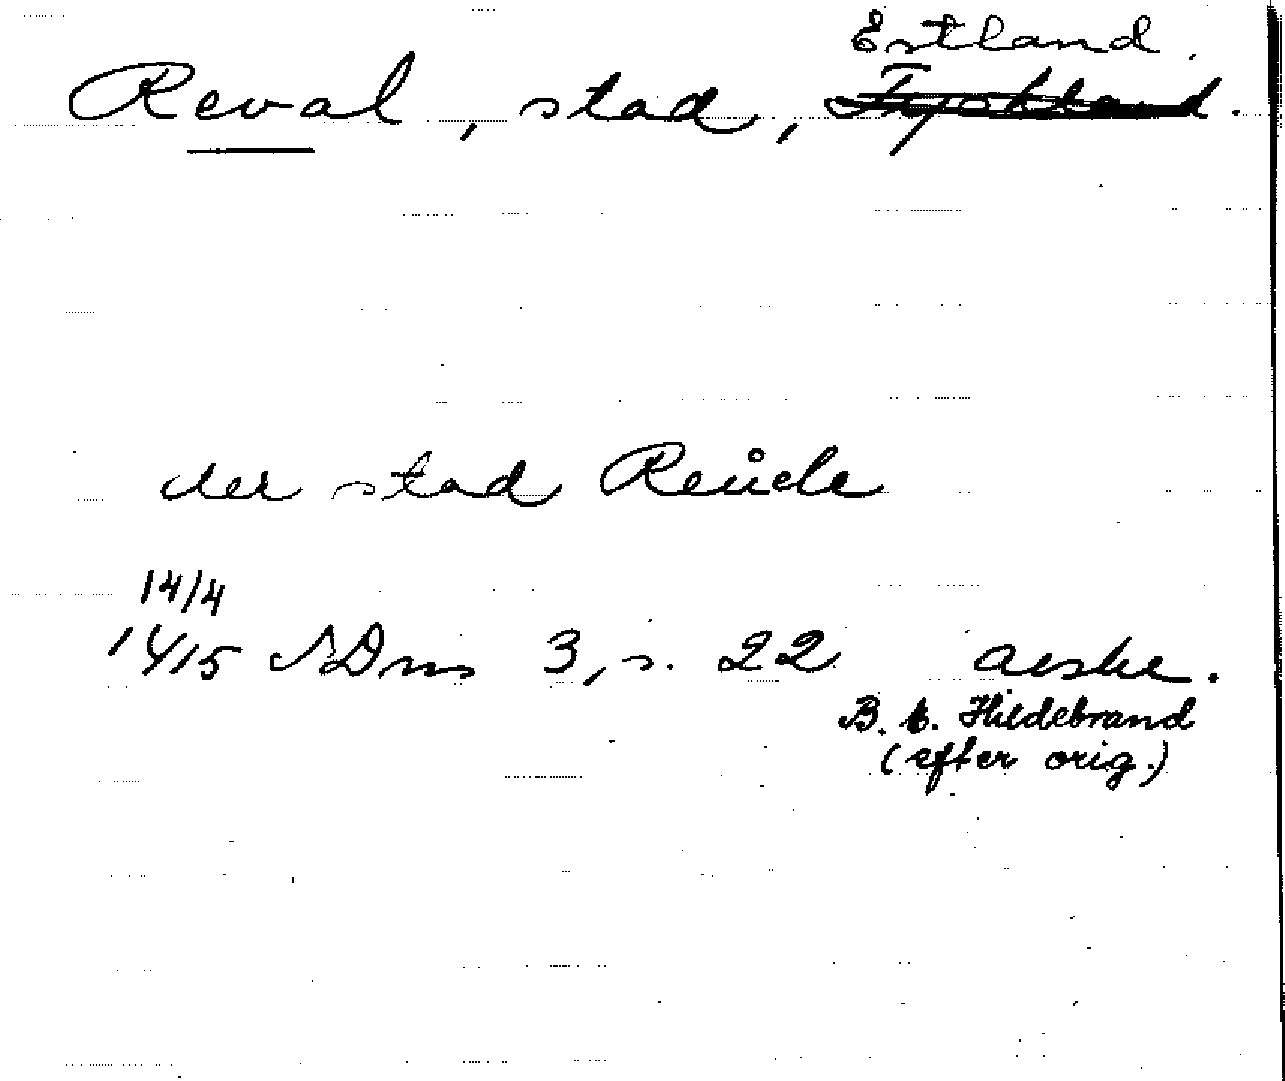 Estland.
Reval, stad, Tyskland.
der stad Reuele
14/4
1415 NDns 3, s. 22 aeske.
B. E. Hildebrand
(efter orig.)